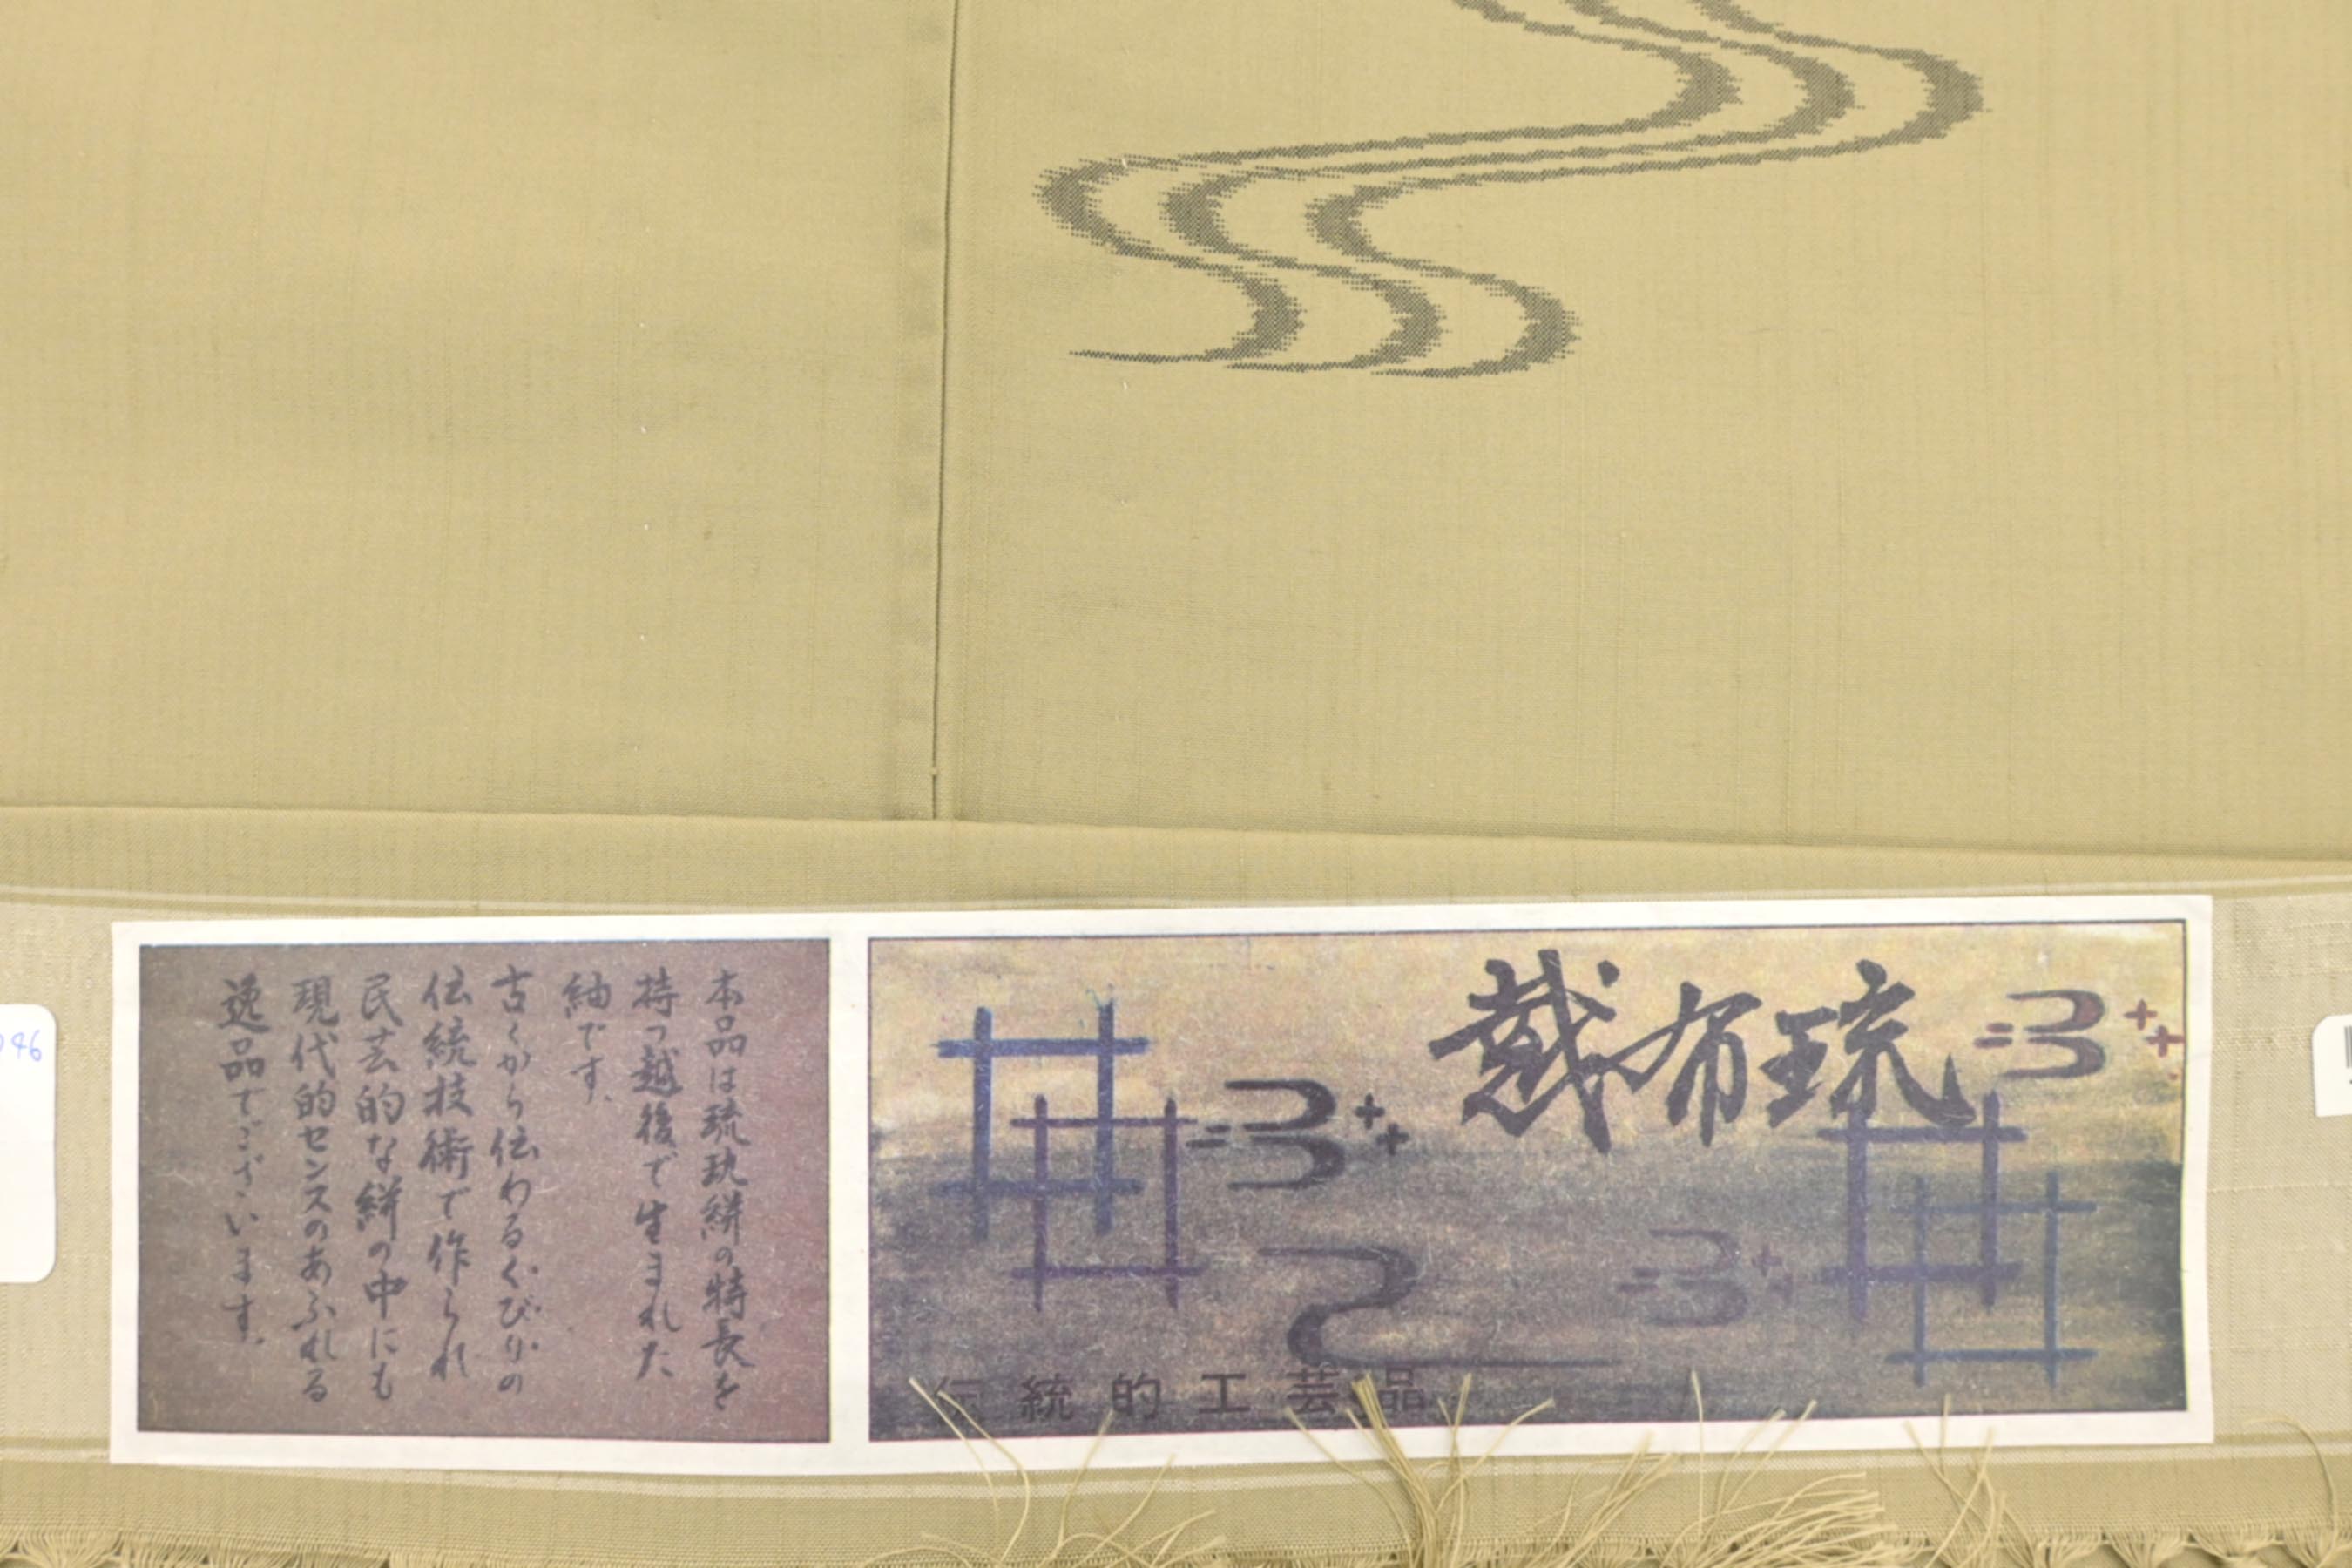 琉布戯
伝統的工芸品
本品は琉球絣の特長を
持つ越後で生まれた
紬です。
古くから伝わるくびりの
伝統技術で作られ
民芸的な絣の中にも
現代的センスのあふれる
逸品でございます。
946